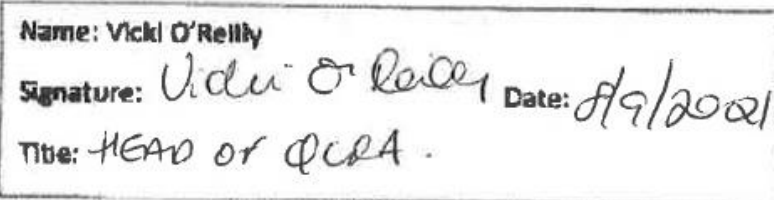 Name: Vicki O'Reilly
Signature: Vicki O'Reilly Date: 8/9/2021
Title: HEAD OF QCRA.